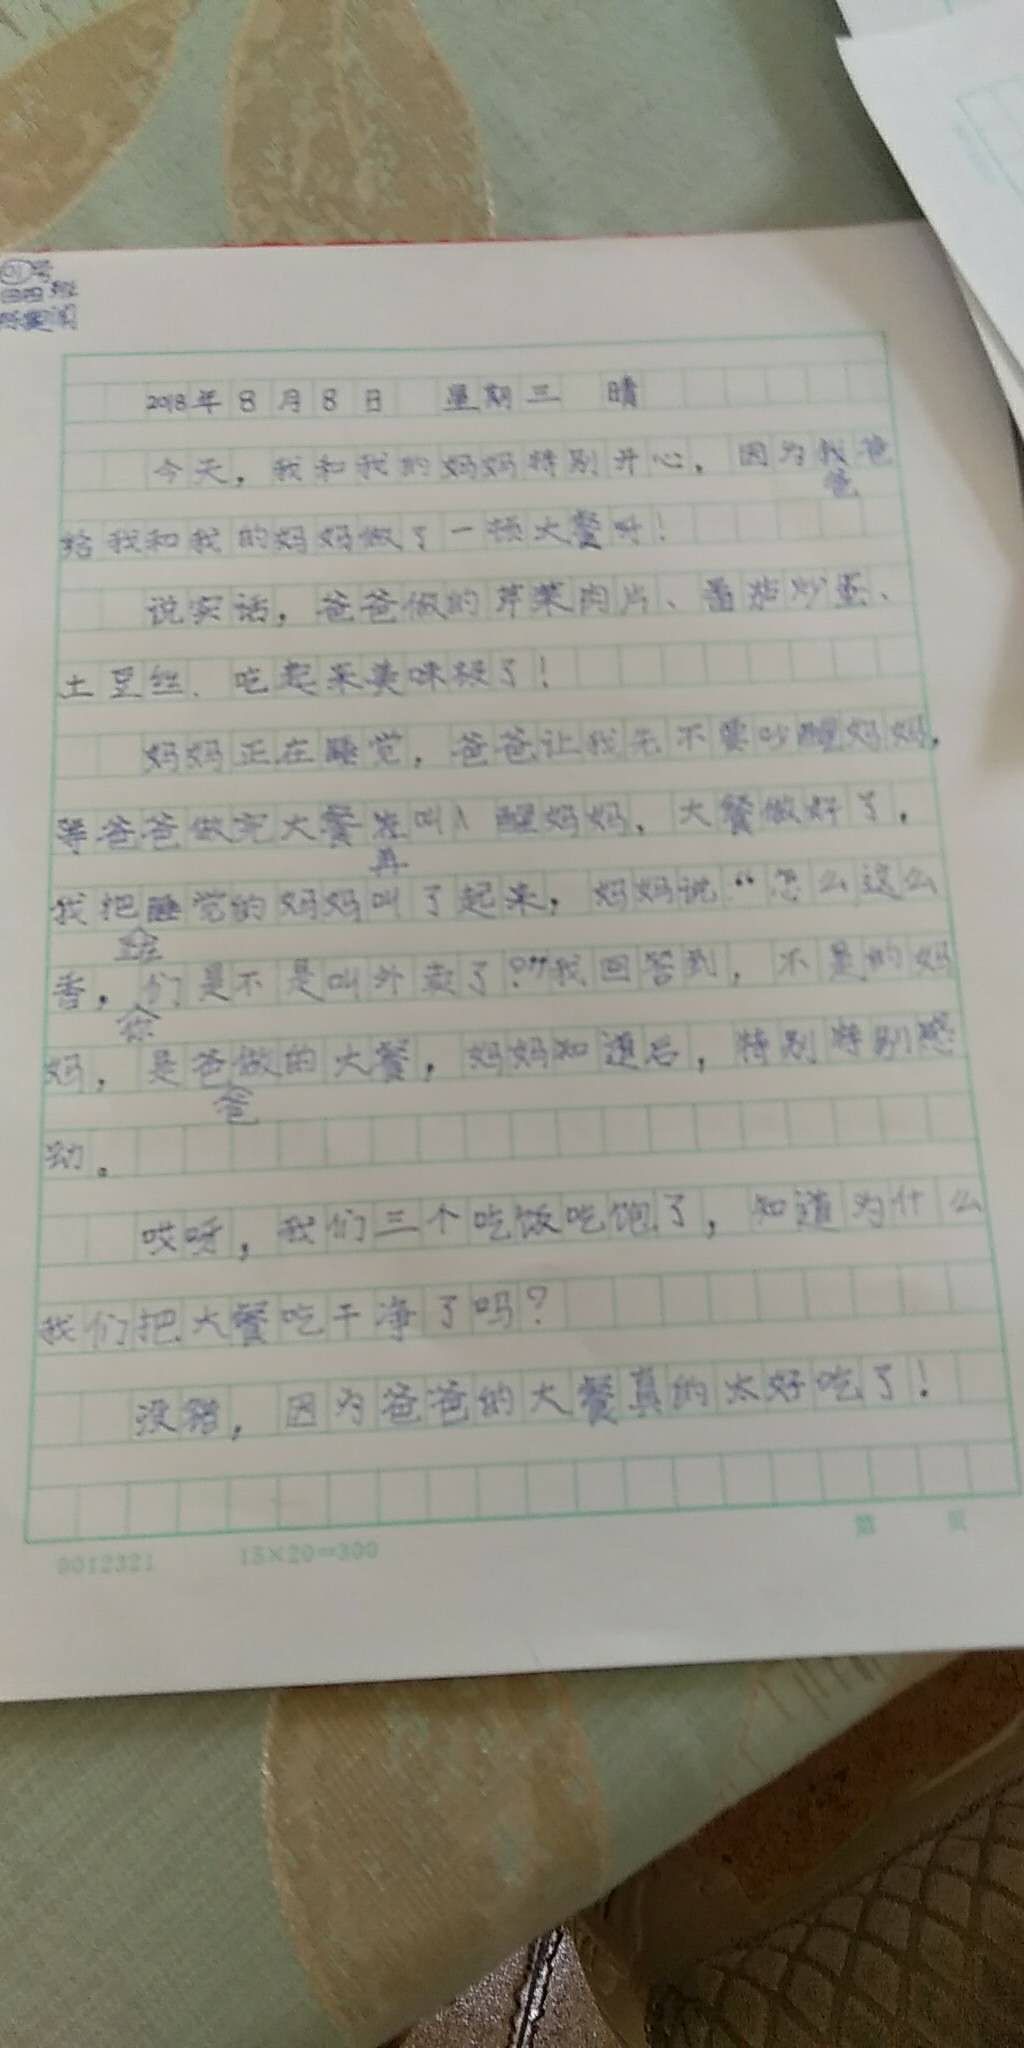 2018年8月8日 星期三 晴
今天，我和我的妈妈特别开心，因为我爸
爸
给我和我的妈妈做了一顿大餐呀！
说实话，爸爸做的芹菜肉片、番茄炒蛋、
土豆丝、吃起来美味极了！
妈妈正在睡觉，爸爸让我先不要吵醒妈妈，
等爸爸做完大餐 叫醒妈妈，大餐做好了，
再
我把睡觉的妈妈叫了起来，妈妈说“怎么这么
正在
香，们是不是叫外卖了？”我回答到，不是的妈
你
妈，是爸做的大餐，妈妈知道后，特别特别感
爸
动。
哎呀，我们三个吃饭吃饱了，知道为什么
我们把大餐吃干净了吗？
没错，因为爸爸的大餐真的太好吃了！
9012321 15×20=300 第 页